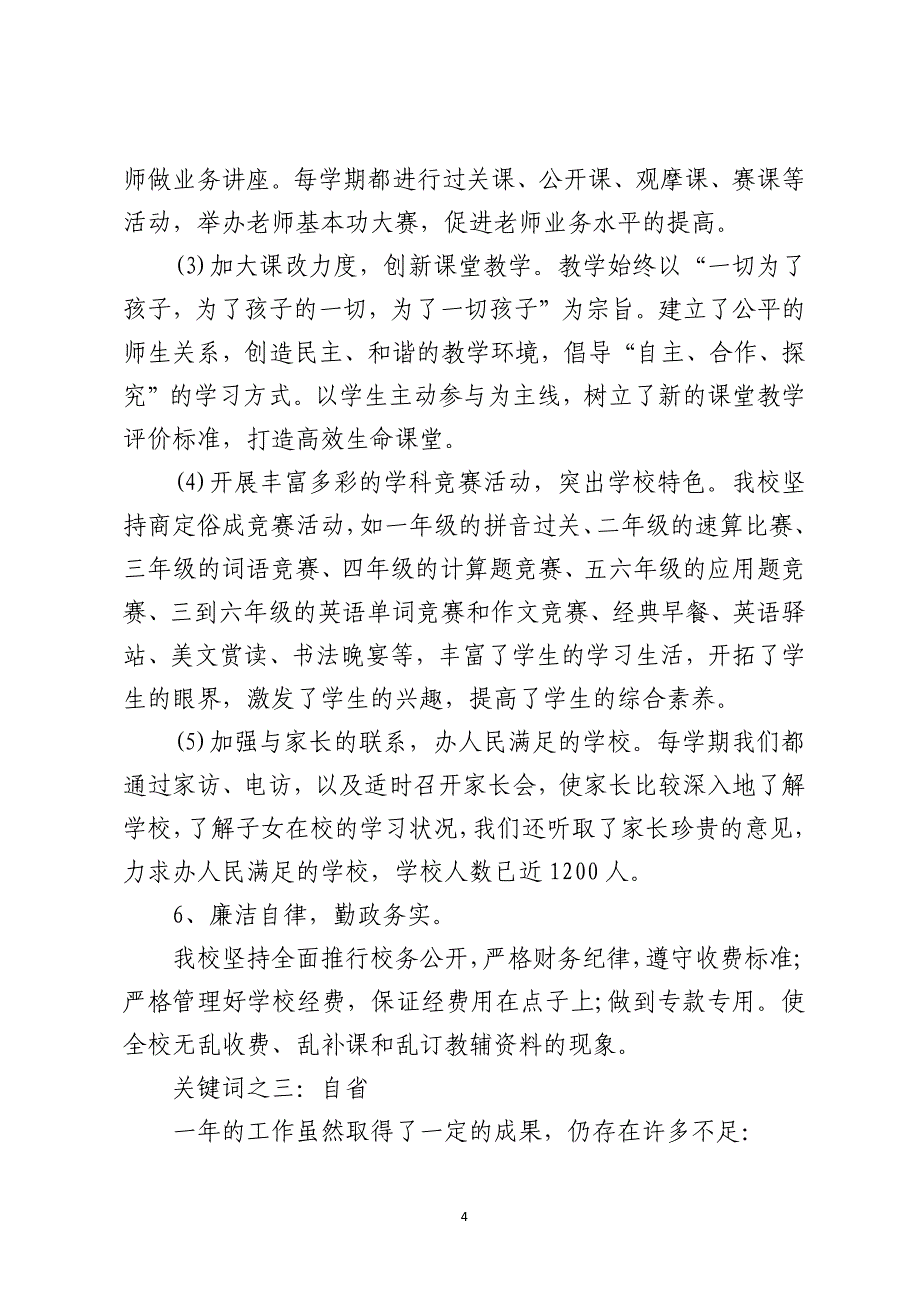 师做业务讲座。每学期都进行过关课、公开课、观摩课、赛课等
活动，举办老师基本功大赛，促进老师业务水平的提高。
(3)加大课改力度，创新课堂教学。教学始终以“一切为了
孩子，为了孩子的一切，为了一切孩子”为宗旨。建立了公平的
师生关系，创造民主、和谐的教学环境，倡导“自主、合作、探
究”的学习方式。以学生主动参与为主线，树立了新的课堂教学
评价标准，打造高效生命课堂。
(4)开展丰富多彩的学科竞赛活动，突出学校特色。我校坚
持商定俗成竞赛活动，如一年级的拼音过关、二年级的速算比赛、
三年级的词语竞赛、四年级的计算题竞赛、五六年级的应用题竞
赛、三到六年级的英语单词竞赛和作文竞赛、经典早餐、英语驿
站、美文赏读、书法晚宴等，丰富了学生的学习生活，开拓了学
生的眼界，激发了学生的兴趣，提高了学生的综合素养。
(5)加强与家长的联系，办人民满足的学校。每学期我们都
通过家访、电访，以及适时召开家长会，使家长比较深入地了解
学校，了解子女在校的学习状况，我们还听取了家长珍贵的意见，
力求办人民满足的学校，学校人数已近1200人。
6、廉洁自律，勤政务实。
我校坚持全面推行校务公开，严格财务纪律，遵守收费标准;
严格管理好学校经费，保证经费用在点子上;做到专款专用。使
全校无乱收费、乱补课和乱订教辅资料的现象。
关键词之三：自省
一年的工作虽然取得了一定的成果，仍存在许多不足：
4